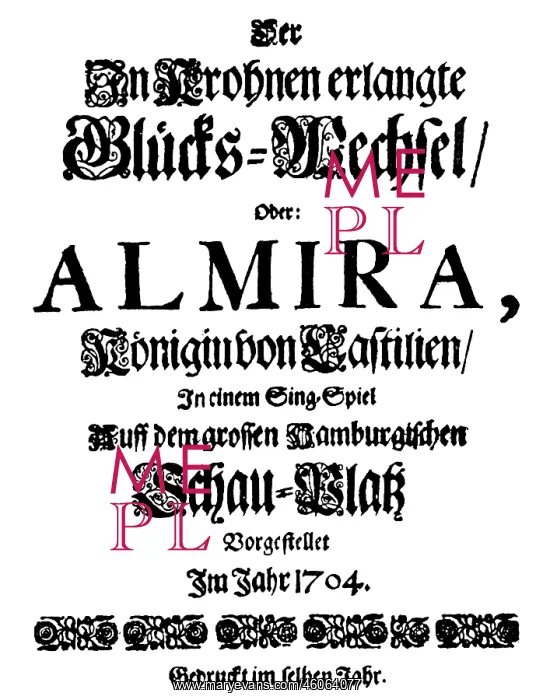 Der
In Krohnen erlangte
Glücks-Wechsel/
Oder:
ALMIRA,
Königin von Castilien/
In einem Sing-Spiel
Auff dem grossen Hamburgischen
Schau-Platz
Vorgestellet
Im Jahr 1704.
Gedruckt im selben Jahr.
ME
PL
ME
PL
www.maryevans.com/46064077